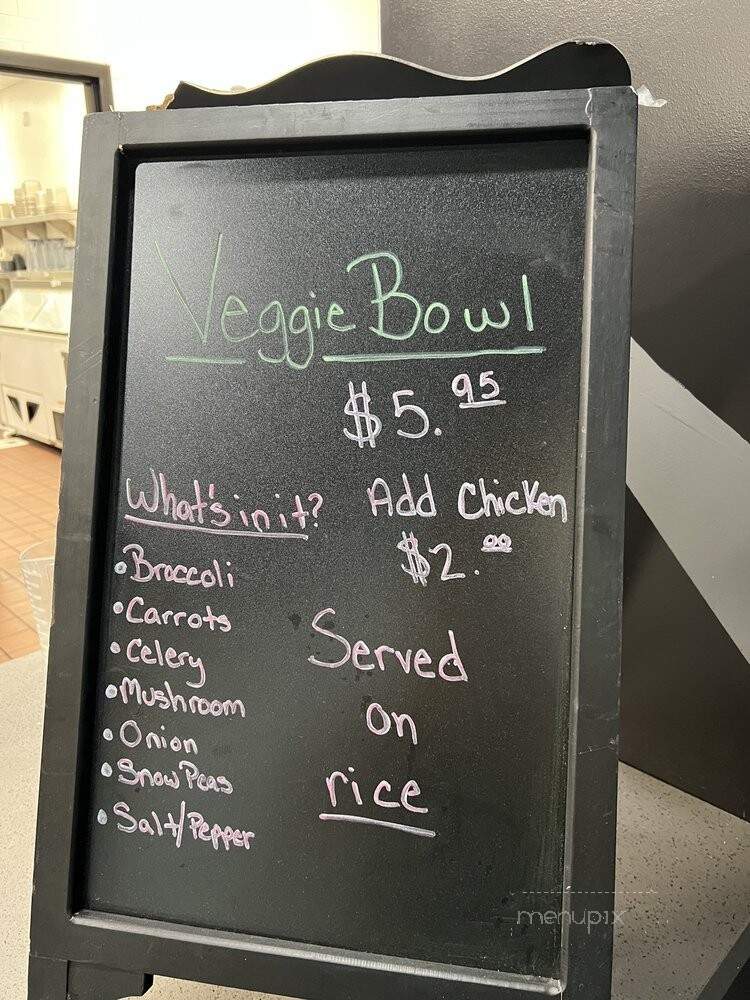 Veggie Bowl
$5.95
What's in it?
• Broccoli
• Carrots
• Celery
• Mushroom
• Onion
• Snow Peas
• Salt/Pepper
Add Chicken
$2.00
Served
on
rice
menupix